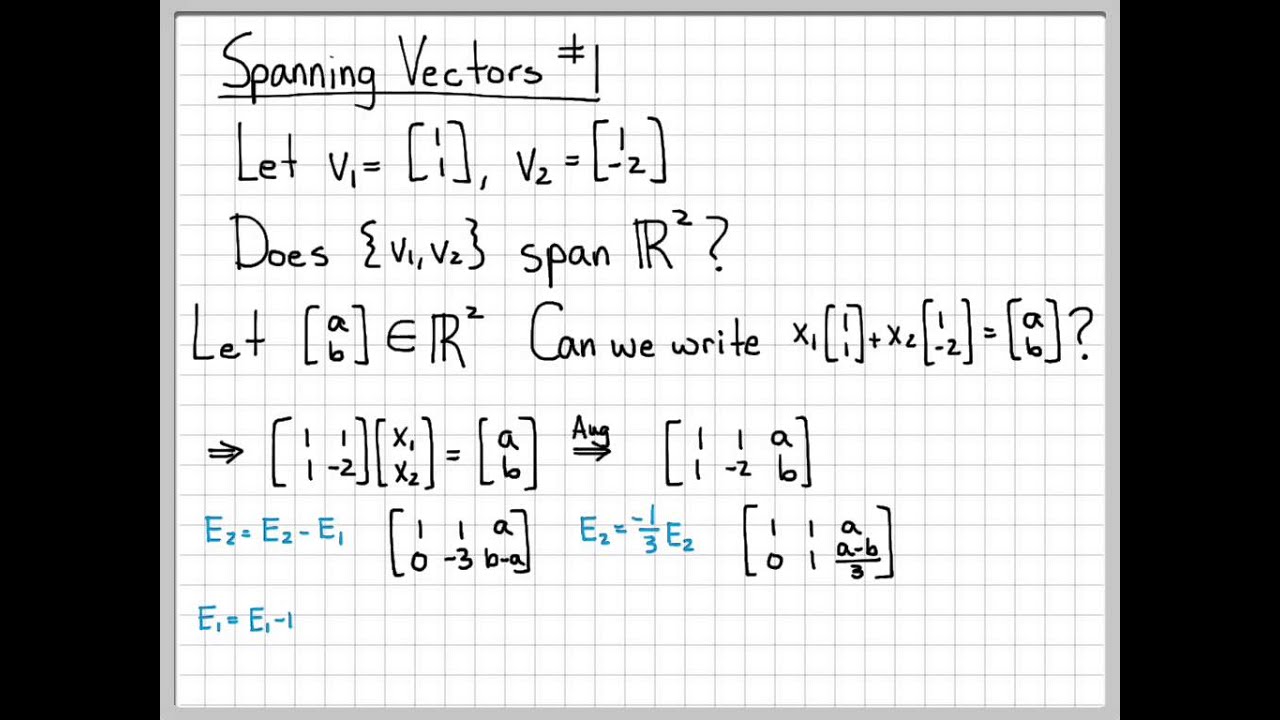 Spanning Vectors #1
Let v₁ = [1 1], v₂ = [1 -2]
Does {v₁, v₂} span ℝ²?
Let [a b] ∈ ℝ² Can we write x₁[1 1] + x₂[1 -2] = [a b]?
⇒ [1 1 1 -2][x₁ x₂] = [a b] Aug ⇒ [1 1 a 1 -2 b]
E₂ = E₂ - E₁ [1 1 a 0 -3 b-a] E₂ = -1/3 E₂ [1 1 a 0 1 (a-b)/3]
E₁ = E₁ - 1